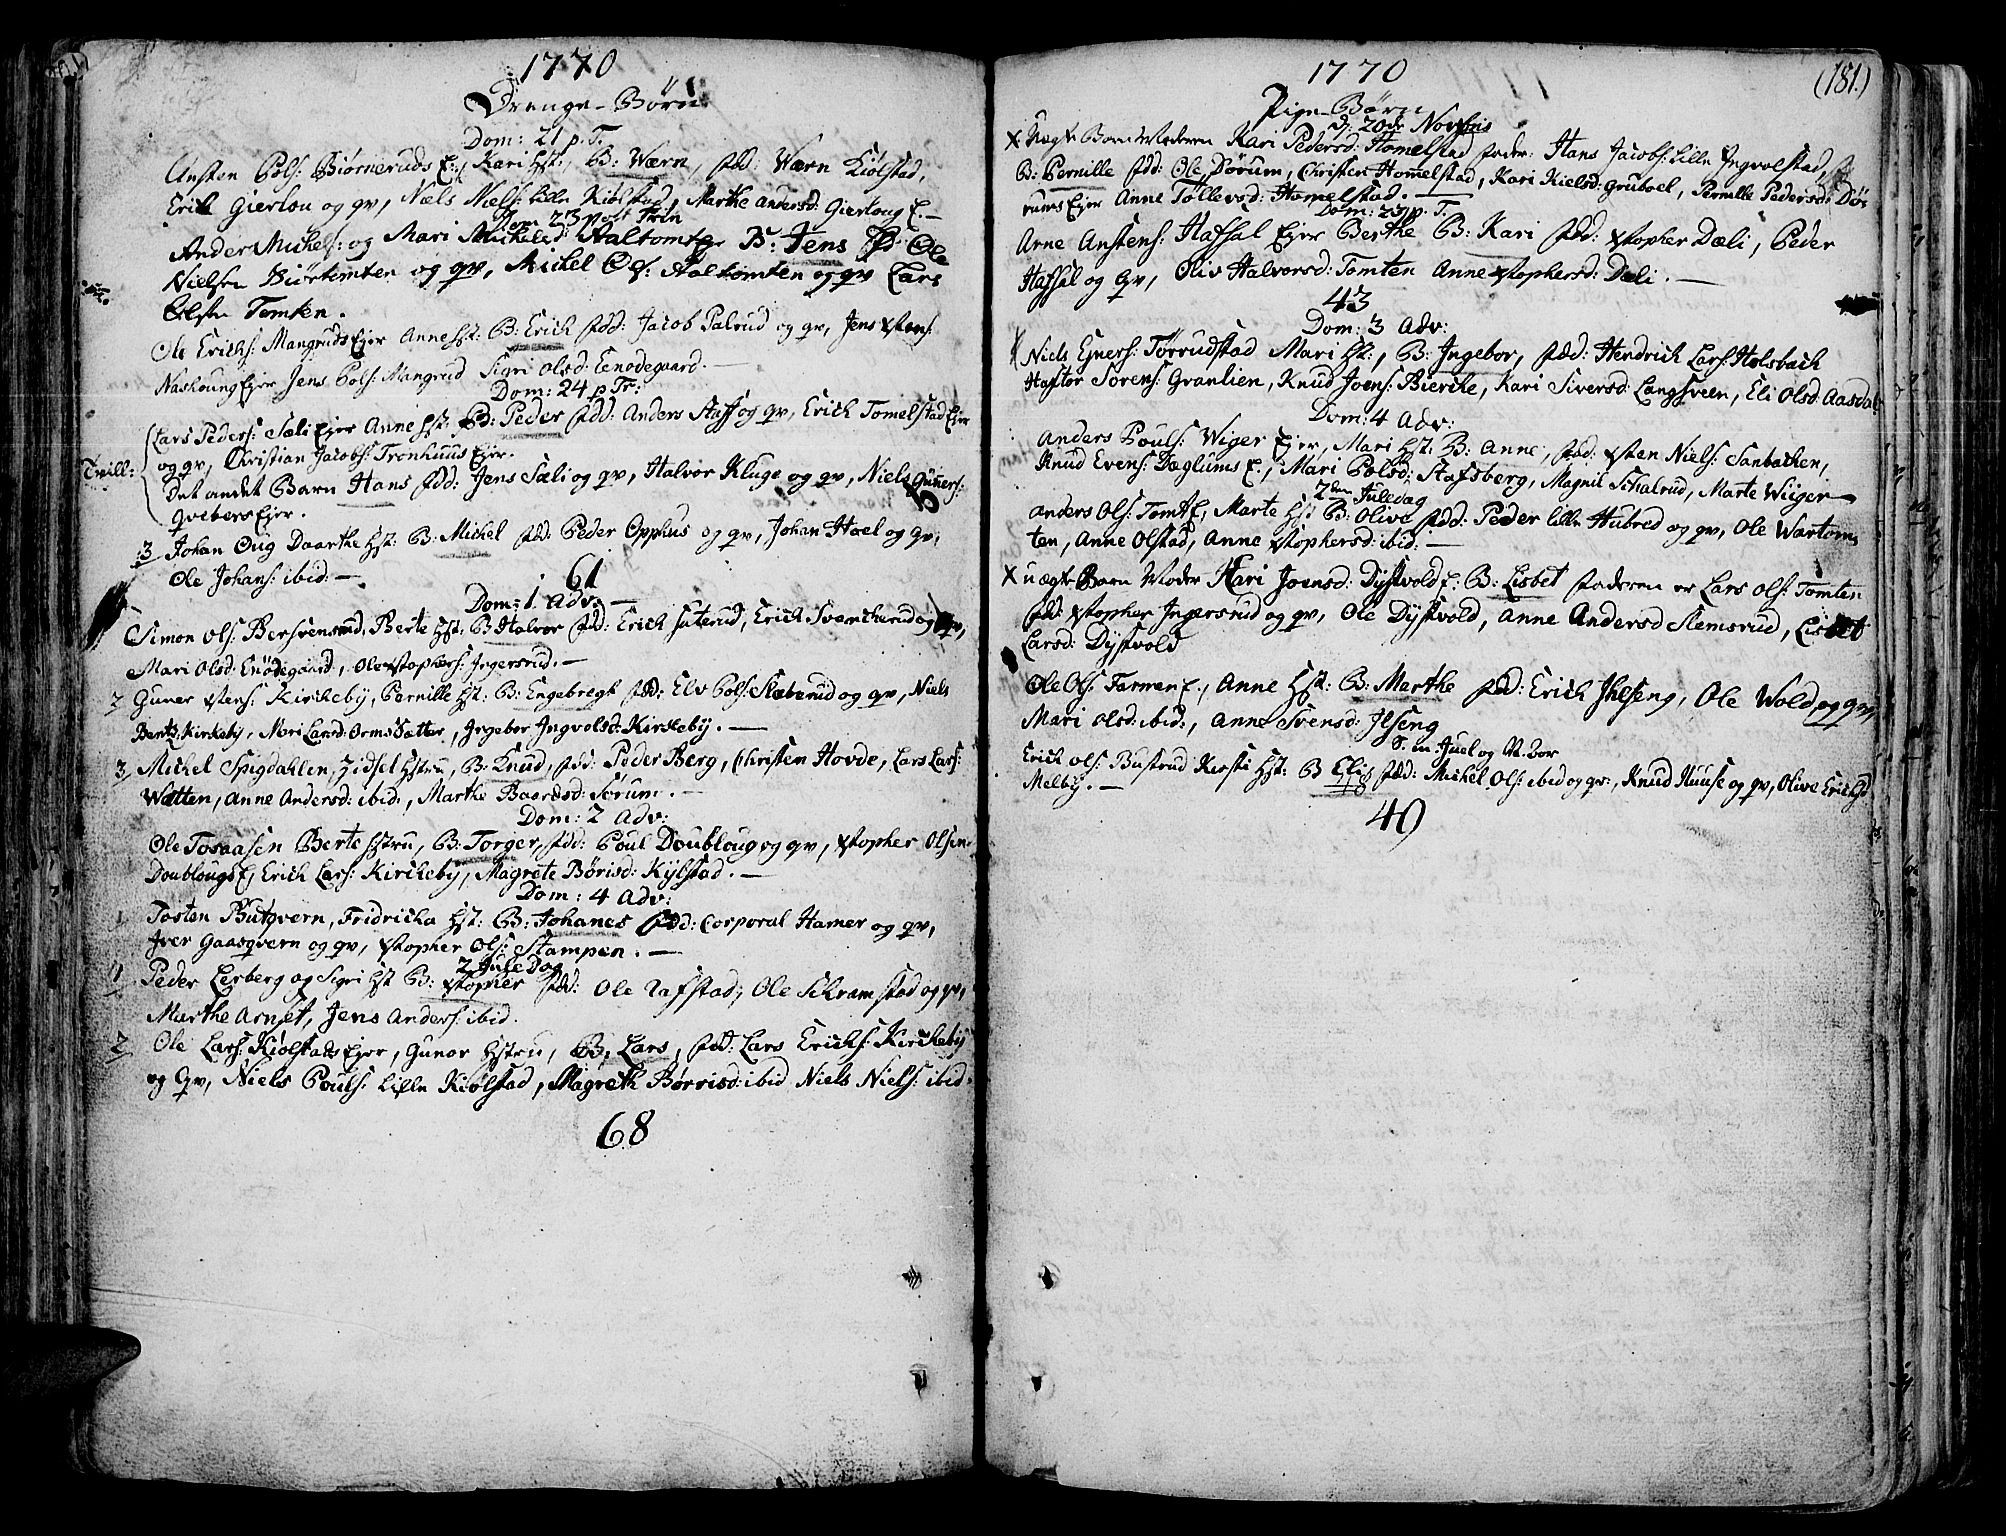 1770
Drenge-Børn
Dom: 21 p. T.
Ansten Pols: Biørneruds E:, Kari Hst:, B: Wærn, fdd: Wærn Kiølstad,
Erich Gierlou og qv, Niels Niels: lille Kiølstad, Marthe Andersd: Gierloug E.—
Dom 23 post Trin
Ander Michels: og Mari Michelsd: Aaltomt Ejer B: Jens Fd: Ole
Nielsen Biørtomten og qv, Michel Ols: Aaltomten og qv Lars
Olsen Tomten.
Ole Erichs: Mangruds Ejer Anne Hst: B: Erich fdd: Jacob Palrud og qv, Jens Xstens:
Naskoung Ejer Jens Pols: Mangrud Sigri Olsd: Eenødegaard.—
Dom: 24 p Tr:
Lars Peders: Sæli Ejer Anne Hst: B: Peder fdd: Anders Staff og qv, Erich Tomelstad Ejer
og qv, Christian Jacobs: Tronhuus Ejer.
Tvill:
Det andet Barn Hans fdd: Jens Sæli og qv, Halvor Kluge og qv, Niels Guners:
qvebers Ejer.
3 Johan Oug Daarthe Hst: B: Michel fdd: Peder Opphus og qv, Johan Hoel og qv,
Ole Johans: ibid:—
61
Dom: 1 Adv:—
Simon Ols: Bersvensrud, Berte Hst: B Halvor fdd: Erich Saterud, Erich Svencherud og qv,
Mari Olsd: Enødegaard, Ole Xstophers: Ingersrud.—
2 Guner Xstens: Kirkeby, Pernille Hst: B: Engebregt fdd: Elv Pols: Slæberud og qv, Niels
Bentz: Kirkeby, Mari Larsd: Orms Sætter, Ingebor Ingvolsd: Kirkeby.—
3 Michel Spigdahlen, Zidsel Hstru, B: Knud, fdd: Peder Berg, Christen Hovde, Lars Lars:
Wætten, Anne Andersd: ibid:, Marthe Baardsd: Sørum.—
Dom: 2 Adv:
Ole Tosaasen Berte Hstru, B: Torger, fdd: Poul Doubloug og qv, Xstopher Olsen
Doublougs E, Erich Lars: Kirkeby, Magrete Børisd: Kylstad.—
Dom: 4 Adv:
1 Tosten Butqvern, Fridricha Hst: B: Johanes fdd: Corporal Hamer og qv,
Iver Gaasqvern og qv, Xstopher Ols: Stampen.—
2 Jule Dag
1 Peder Lerberg og Sigri Hst B: Xstopher fdd: Ole Rafstad, Ole Schramstad og qv,
Marthe Arnset, Jens Anders: ibid.
2 Ole Lars: Kiølstads Ejer, Gunor Hstru, B: Lars, fdd: Lars Erichs: Kirkeby
og Qv, Niels Pouls: Lille Kiølstad, Magreth Børrisd: ibid Niels Niels: ibid:
68
1770
(181.)
Pige-Børn
d: 20de Novbris
X Uægte Barn Moderen Kari Pedersd: Homelstad fader: Hans Jacobs: Lille Ingvolstad,
B: Pernille fdd: Ole Børum, Christen Homelstad, Kari Kielsd: Gruboel, Pernille Pedersd: Dø-
rums Ejer Anne Tollevsd: Homelstad.—
Dom: 23 p. T.
Arne Anstens: Hafsal Ejer Berthe B: Kari fdd: Xstopher Dæli, Peder
Hafsal og Qv, Oliv Halvorsd: Tomten Anne Xstophersd: Dæli.—
43
Dom: 3 Adv:
X Niels Ejners: Torrudstad Mari Hst:, B: Ingebor, fdd: Hendrich Lars: Holsbach
Haftor Sørens: Granlien, Knud Joens: Bierche, Kari Siversd: Langsveen, Eli Olsd: Aasdal
Dom: 4 Adv:
Anders Pouls: Wiger Ejer, Mari Hst: B: Anne, fdd: Xsten Niels: Sanbacken,
Knud Evens: Dæglums E, Mari Polsd: Stafsberg, Magnil Schalrud, Marte Wiiger—
2den Juledag
Anders Ols: Tomt E, Marte Hst B: Olive fdd: Peder lille Hubred og qv, Ole Wartom-
ten, Anne Olstad, Anne Xstophersd: ibid:—
X uægte Barn Moder Kari Joensd: Dystvold E: B: Lisbet faderen er Lars Ols: Tomten
fdd: Xstopher Ingersrud og qv, Ole Dystvold, Anne Andersd Slemsrud, Lisbet
Larsd: Dystvold
Ole Ols: Formen E, Anne Hst: B: Marthe fdd: Erich Ihlseng, Ole Wold og qv,
Mari Olsd: ibid:, Anne Svensd: Ilseng
S. m Juel og N. Aar
Erich Ols: Bustrud Kirsti Hst: B Elis fdd: Michel Ols: ibid og qv:, Knud Huuse og qv, Olive Erichsd
Melby.—
49